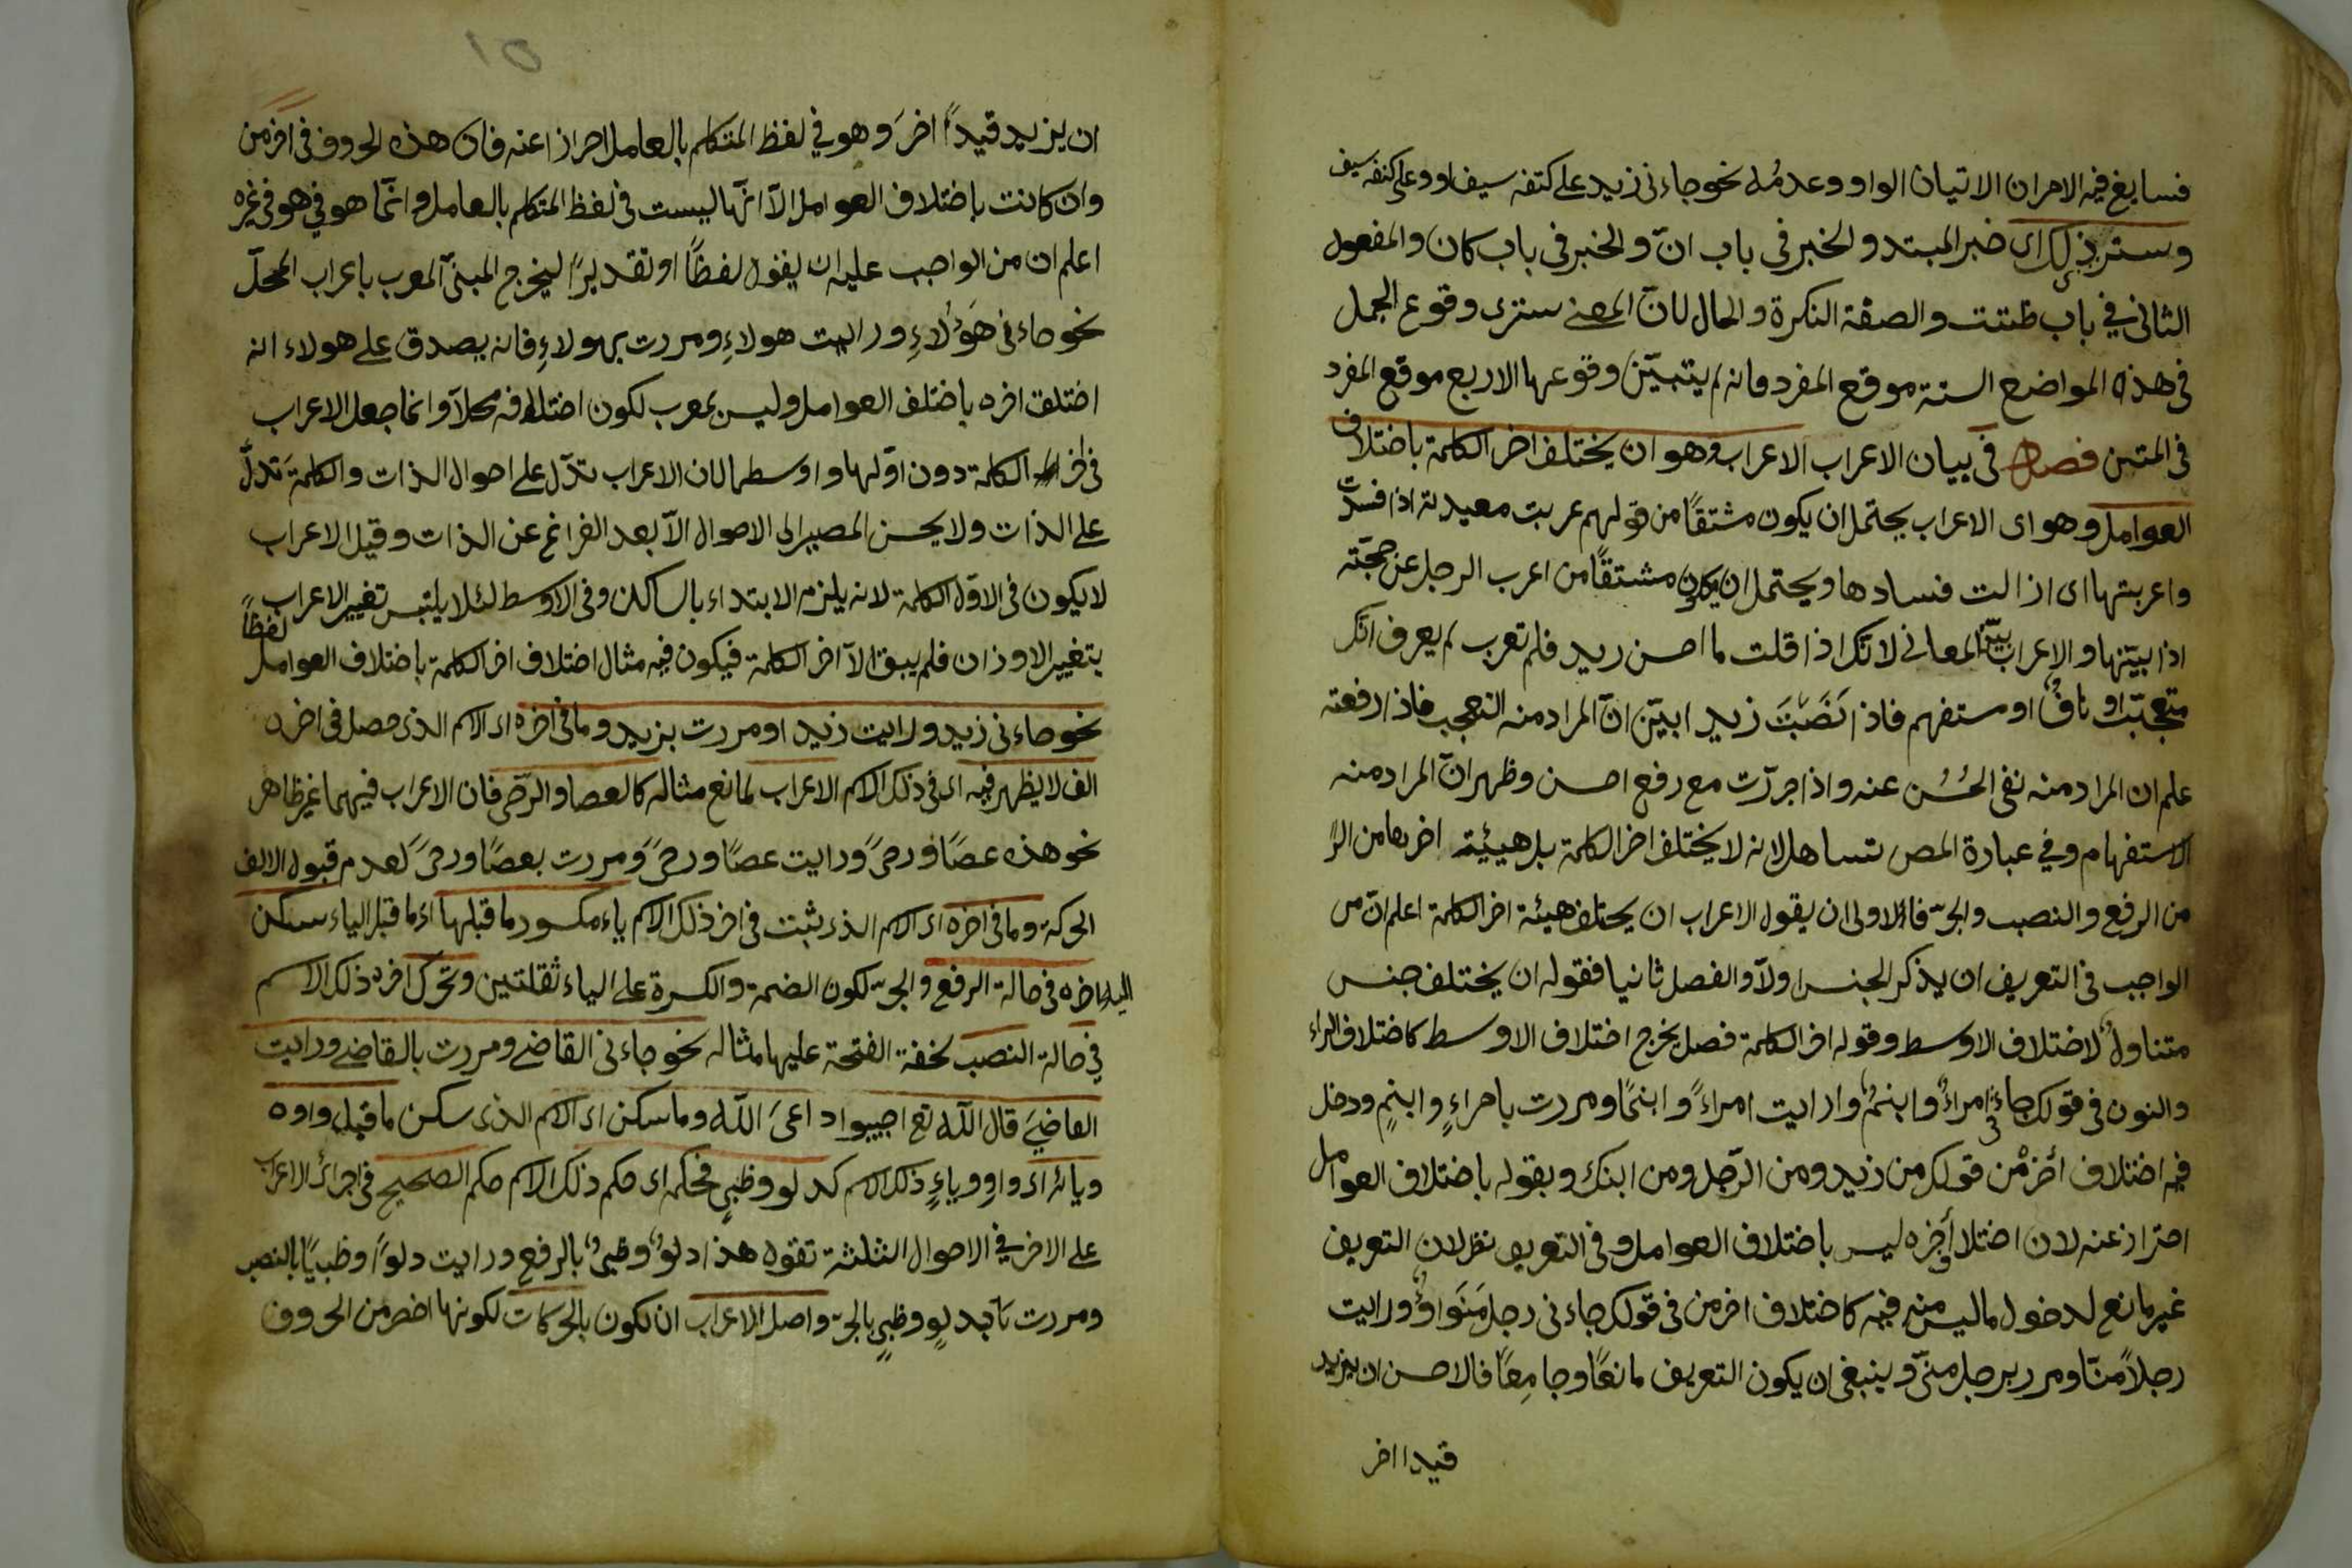 فسايغ فيه الامران الاتيان الواو وعدمُه نحو جاءنى زيد على كتفه سيف او وعلى كتفه سيف
وستر ذلك اى خبر المبتد والخبر فى باب انّ والخبر فى باب كان والمفعول
الثانى في باب ظننت والصفة النكرة والحال لانّ المعنے سترى وقوع الجمل
فى هذه المواضع الستة موقع المفرد فانه لم يتبيّن وقوعها الاربع موقع المفرد
فى المتن فصل فى بيان الاعراب الاعراب وهو ان يختلف اخر الكلمة باختلاف
العوامل وهو اى الاعراب يحتمل ان يكون مشتقًا من قولهم عربت معيدته اذا فسدت
واعربتها اى ازالت فسادها ويحتمل ان يكون مشتقًا من اعرب الرجل عن حجّته
اذا بيّنها والاعراب يبيّن المعانى لانّك اذا قلت ما احسن زيد فلم تعرب لم يعرف انّك
متعجّب او نافٌ او ستفهم فاذا نَصَبْتَ زيدا بيّن انّ المراد منه التعجب فاذا رفعته
علم ان المراد منه نفى الحُسُن عنه واذا جررّت مع رفع احسن وظهر انّ المراد منه
الاستفهام وفي عبارة المص تساهل لانه لا يختلف اخر الكلمة بل هيئية اخرها من الر
من الرفع والنصب والجرّ فالاولى ان يقول الاعراب ان يختلف هيئة اخر الكلمة اعلم انّ من
الواجب فى التعريف ان يذكر الجنس اولاً والفصل ثانيا فقوله ان يختلف جنس
متناولٌ لاختلاف الاوسط وقوله اخر الكلمة فصل يخرج اختلاف الاوسط كاختلاف الراء
والنون فى قولك جاءنى امراءٌ وابنمٌ وارايت امراءً وابنمًا ومررت بامراءٍ وابنمٍ ودخل
فيه اختلاف اخر من قولك من زيد ومن الرّجل ومن ابنك وبقوله باختلاف العوامل
احتراز عنه لان اختلاف اخره ليس باختلاف العوامل وفى التعريف نظر لان التعريف
غير مانع لدخول ما ليس منه فيه كاختلاف اخر من فى قولك جاءنى رجل مَنَواوٌ ورايت
رجلاً منّا ومرر برجل منّى وينبغى ان يكون التعريف مانعًا وجامِعًا فالاحسن ان يزيد
قيدا اخر
١٥
ان يزيد قيداً اخرَ وهو في لفظ المتكلم بالعامل احرازا عنه فان هذه الحروف فى اخر من
وان كانت باختلاف العوامل الاّ انّها ليست فى لفظ المتكلم بالعامل وانّما هو في هو فى غيره
اعلم ان من الواجب عليه ان يقول لفظًا او تقديرًا ليخرج المبنىّ المعرب باعراب المحلّ
نحو جاءنى هَؤُلاءِ ورايت هولاءِ ومررت بهولاءِ فانه يصدق على هولاء انه
اختلف اخره باختلف العوامل وليس بمعرب لكون اختلافه محلاّ وانما جعل الاعراب
فى اخر الكلمة دون اوّلها واوسطها لان الاعراب تدلّ على احوال الذات والكلمة تدلّ
على الذات ولا يحسن المصير الى الاحوال الاّ بعد الفراغ عن الذات وقيل الاعراب
لا يكون فى الاوّل الكلمة لانه يلزم الابتداء بالساكن وفى الاوسط لئلا يلتبس تغيير الاعراب
بتغيير الاوزان فلم يبق الاّ اخر الكلمة فيكون فيه مثال اختلاف اخر الكلمة باختلاف العوامل لفظًا
نحو جاءنى زيد ورايت زيدا ومررت بزيد وما فى اخره اى الاسم الذى حصل فى اخره
الف لا يظهر فيه اى فى ذلك الاسم الاعراب لمانع مثاله كالعصا والرّحى فان الاعراب فيهما غير ظاهر
نحو هذه عصًا ورحىً ورايت عصًا ورحىً ومررت بعصًا ورحىً لعدم قبول الالف
الحركة وما فى اخره اى الاسم الذى ثبت فى اخر ذلك الاسم ياء مكسور ما قبلها اى ما قبل الياء سكن
الياء اخره فى حالة الرفع والجرّ لكون الضمة والكسرة على الياء ثقلتين وتحرّك اخره ذلك الاسم
في حالة النصب لخفة الفتحة عليها مثاله نحو جاءنى القاضے ومررت بالقاضے ورايت
القاضےَ قال اللّه تع اجيبوا داعىَ اللّه وما سكن اى الاسم الذى سكن ما قبل واوه
ويائه اى واوٍ وياءٍ ذلك الاسم كدلو وظبىٍ فحكمه اى حكم ذلك الاسم حكم الصحيح فى اجرائ الاعراب
على الاخر في الاحوال الثلثة تقول هذا دلوٌ وظبىٌ بالرفع ورايت دلوًا وظبيًا بالنصب
ومررت بدلوٍ وظبىٍ بالجرّ واصل الاعراب ان لكون بالحركات لكونها اخصر من الحروف